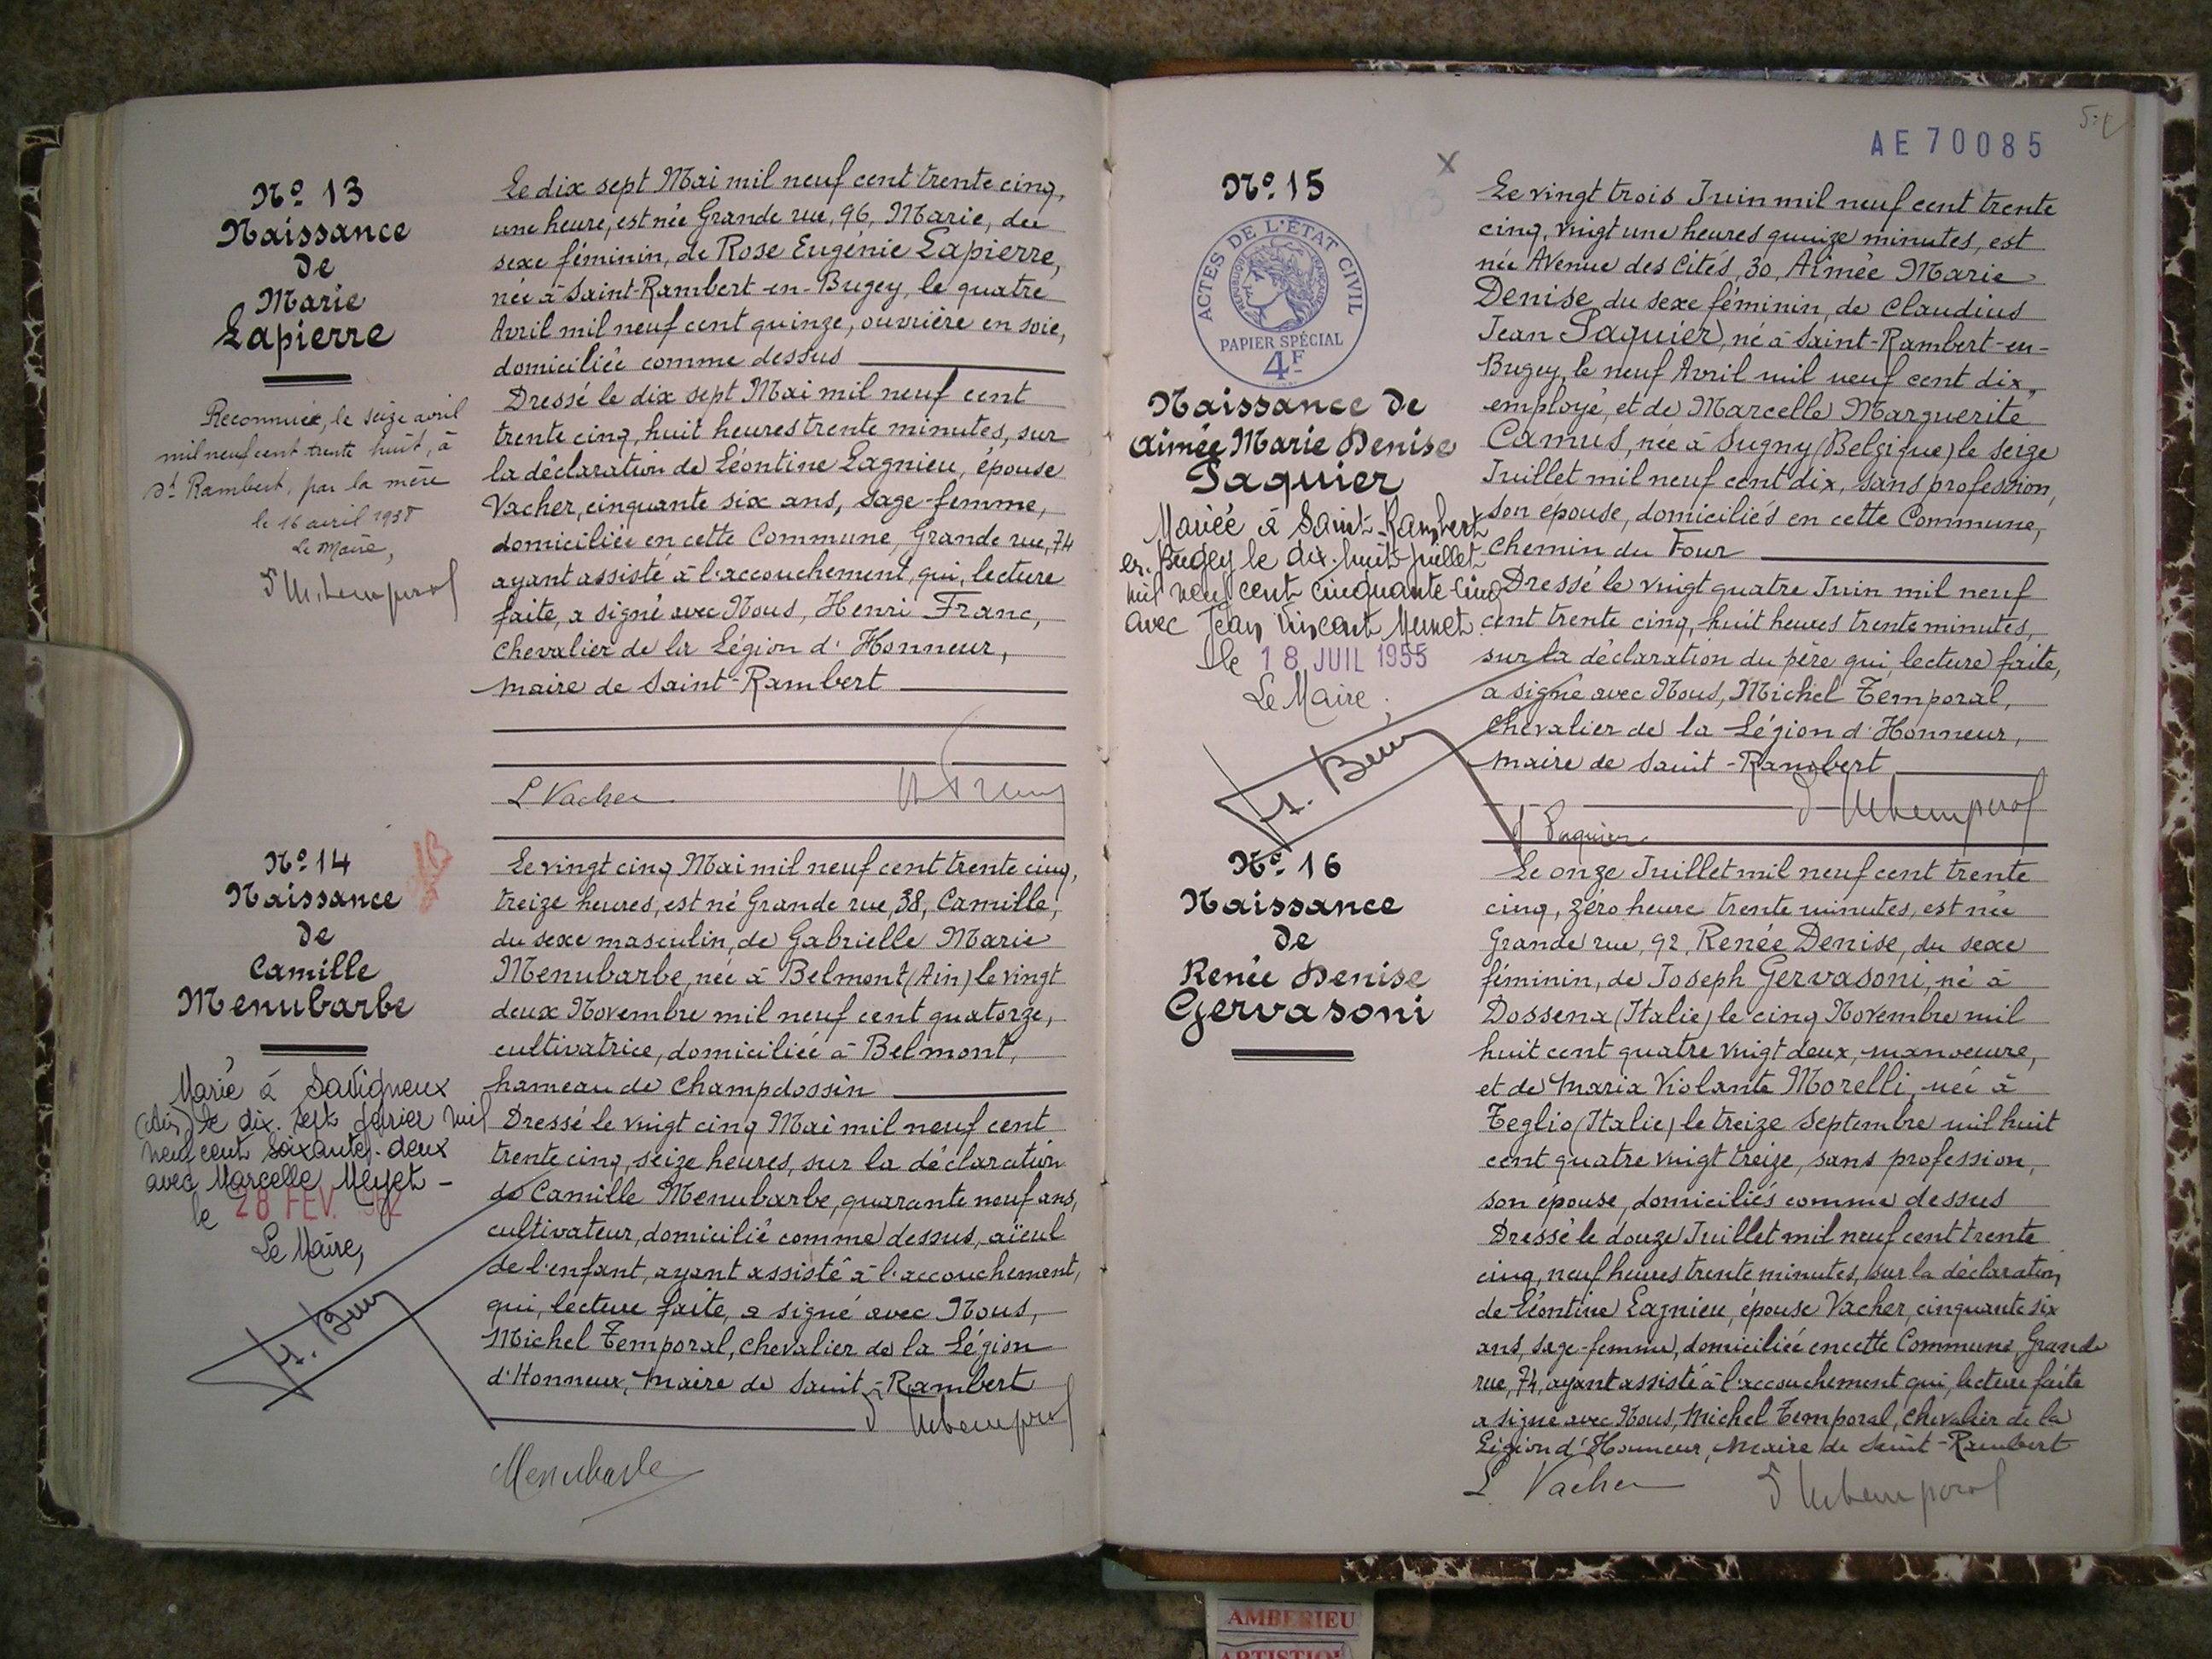 Nº 13
Naissance
de
Marie
Lapierre
Reconnue, le seize avril
mil neuf cent trente huit, à
St Rambert, par la mère
le 16 avril 1938
Le Maire,
Le dix sept Mai mil neuf cent trente cinq,
une heure, est née Grande rue, 96, Marie, du
sexe féminin, de Rose Eugénie Lapierre,
née à Saint-Rambert-en-Bugey, le quatre
Avril mil neuf cent quinze, ouvrière en soie,
domiciliée comme dessus
Dressé le dix sept Mai mil neuf cent
trente cinq, huit heures trente minutes, sur
la déclaration de Léontine Lagnieu, épouse
Vacher, cinquante six ans, sage-femme,
domiciliée en cette Commune, Grande rue, 74
ayant assisté à l'accouchement, qui, lecture
faite, a signé avec Nous, Henri Franc,
Chevalier de la Légion d'Honneur,
maire de Saint-Rambert
L Vacher
Nº 14
Naissance
de
Camille
Menubarbe
Marié à Savigneux
(Ain) le dix-sept février mil
neuf cent soixante-deux
avec Marcelle Meyet -
le 28 FEV. 1962
Le Maire,
Le vingt cinq Mai mil neuf cent trente cinq,
treize heures, est né Grande rue, 38, Camille,
du sexe masculin, de Gabrielle Marie
Menubarbe, née à Belmont (Ain) le vingt
deux Novembre mil neuf cent quatorze,
cultivatrice, domiciliée à Belmont,
hameau de Champdossin
Dressé le vingt cinq Mai mil neuf cent
trente cinq, seize heures, sur la déclaration
de Camille Menubarbe, quarante neuf ans,
cultivateur, domicilié comme dessus, aïeul
de l'enfant, ayant assisté à l'accouchement,
qui, lecture faite, a signé avec Nous,
Michel Temporal, Chevalier de la Légion
d'Honneur, maire de Saint-Rambert
Menubarbe
AE 70085
Nº 15
ACTES DE L'ÉTAT CIVIL
RÉPUBLIQUE FRANÇAISE
PAPIER SPÉCIAL
4F
Naissance de
Aimée Marie Denise
Paquier
Mariée à Saint-Rambert
en-Bugey le dix-huit juillet
mil neuf cent cinquante-cinq
avec Jean Vincent
le 18 JUIL 1955
Le Maire,
Le vingt trois Juin mil neuf cent trente
cinq, vingt une heures quinze minutes, est
née Avenue des Cités, 30, Aimée Marie
Denise, du sexe féminin, de Claudius
Jean Paquier, né à Saint-Rambert-en-
Bugey, le neuf Avril mil neuf cent dix,
employé, et de Marcelle Marguerite
Camus, née à Sugny (Belgique) le seize
Juillet mil neuf cent dix, sans profession,
son épouse, domiciliés en cette Commune,
Chemin du Four
Dressé le vingt quatre Juin mil neuf
cent trente cinq, huit heures trente minutes,
sur la déclaration du père qui, lecture faite,
a signé avec Nous, Michel Temporal,
Chevalier de la Légion d'Honneur,
maire de Saint-Rambert
Paquier
Nº 16
Naissance
de
Renée Denise
Gervasoni
Le onze Juillet mil neuf cent trente
cinq, zéro heure trente minutes, est née
Grande rue, 92, Renée Denise, du sexe
féminin, de Joseph Gervasoni, né à
Dossena (Italie) le cinq Novembre mil
huit cent quatre vingt deux, manoeuvre,
et de Maria Violante Morelli, née à
Teglio (Italie) le treize Septembre mil huit
cent quatre vingt treize, sans profession,
son épouse, domiciliés comme dessus
Dressé le douze Juillet mil neuf cent trente
cinq, neuf heures trente minutes, sur la déclaration
de Léontine Lagnieu, épouse Vacher, cinquante six
ans, sage-femme, domiciliée en cette Commune, Grande
rue, 74, ayant assisté à l'accouchement qui, lecture faite
a signé avec Nous, Michel Temporal, Chevalier de la
Légion d'Honneur, maire de Saint-Rambert
L Vacher
AMBERIEU